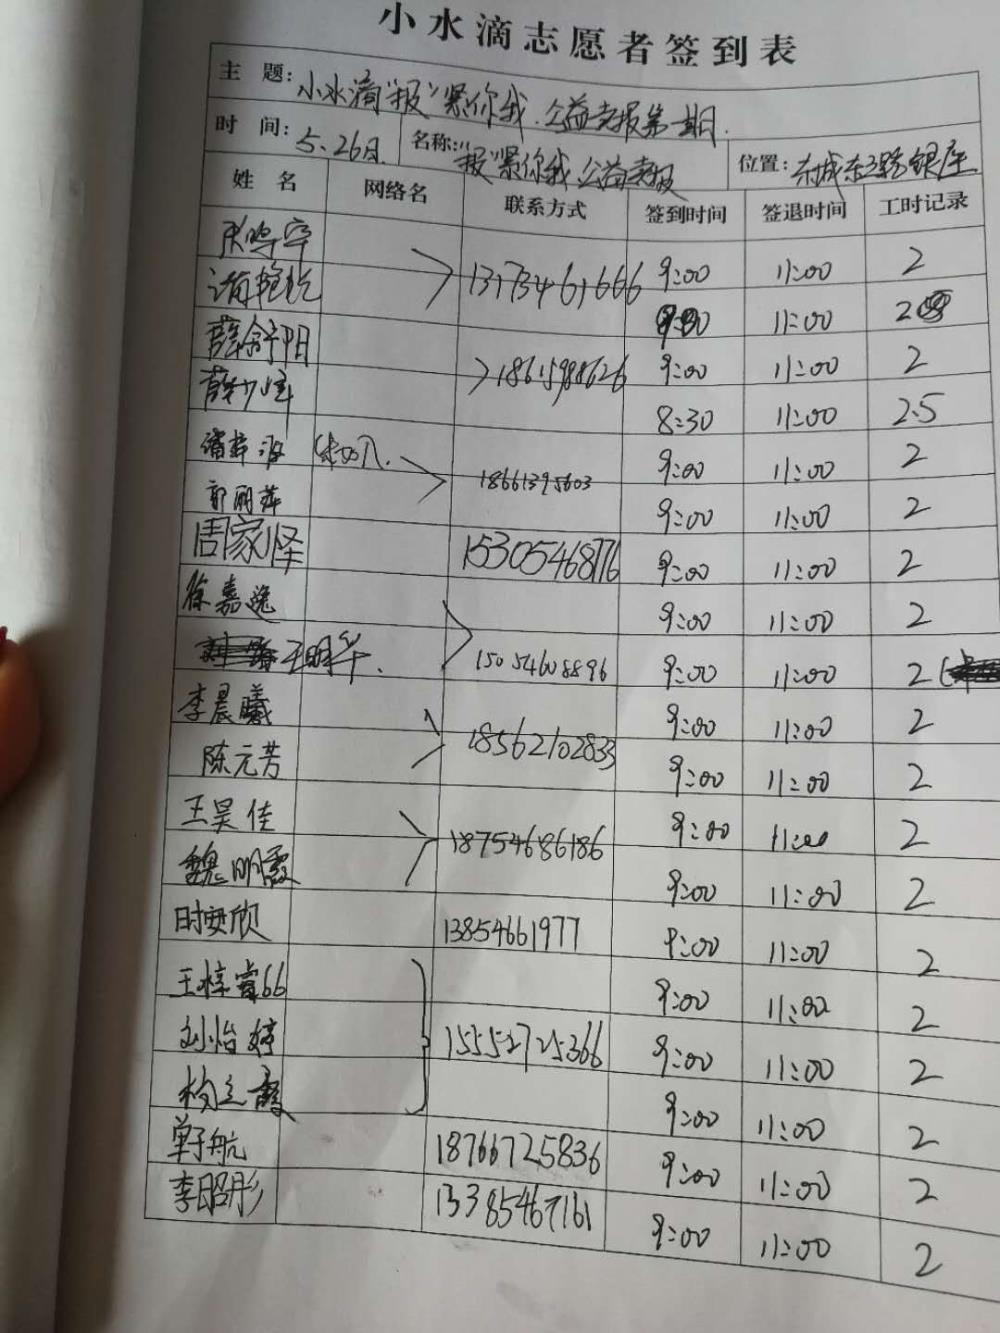 小水滴志愿者签到表
主 题: 小水滴"报"紧你我.公益卖报第 期
时 间: 5.26日 名称:"报"紧你我 公益卖报 位置: 东城东三路银座
姓 名 网络名 联系方式 签到时间 签退时间 工时记录
9:00 11:00 2
13173461666 11:00 2
薛舒阳 9:00 11:00 2
薛 18615988626 8:30 11:00 2.5
9:00 11:00 2
郭丽萍 18661395603 9:00 11:00 2
周家怿 15305468776 9:00 11:00 2
徐嘉逸 9:00 11:00 2
王明华. 15054608896 9:00 11:00 2
李晨曦 9:00 11:00 2
陈元芳 18562102833 9:00 11:00 2
王昊佳 9:00 11:00 2
魏明霞 18754686186 9:00 11:00 2
时安欣 13854661977 9:00 11:00 2
王梓睿66 9:00 11:00 2
刘怡婷 15552725366 9:00 11:00 2
9:00 11:00 2
单子航 18766725836 9:00 11:00 2
李昭彤 13385467161 9:00 11:00 2